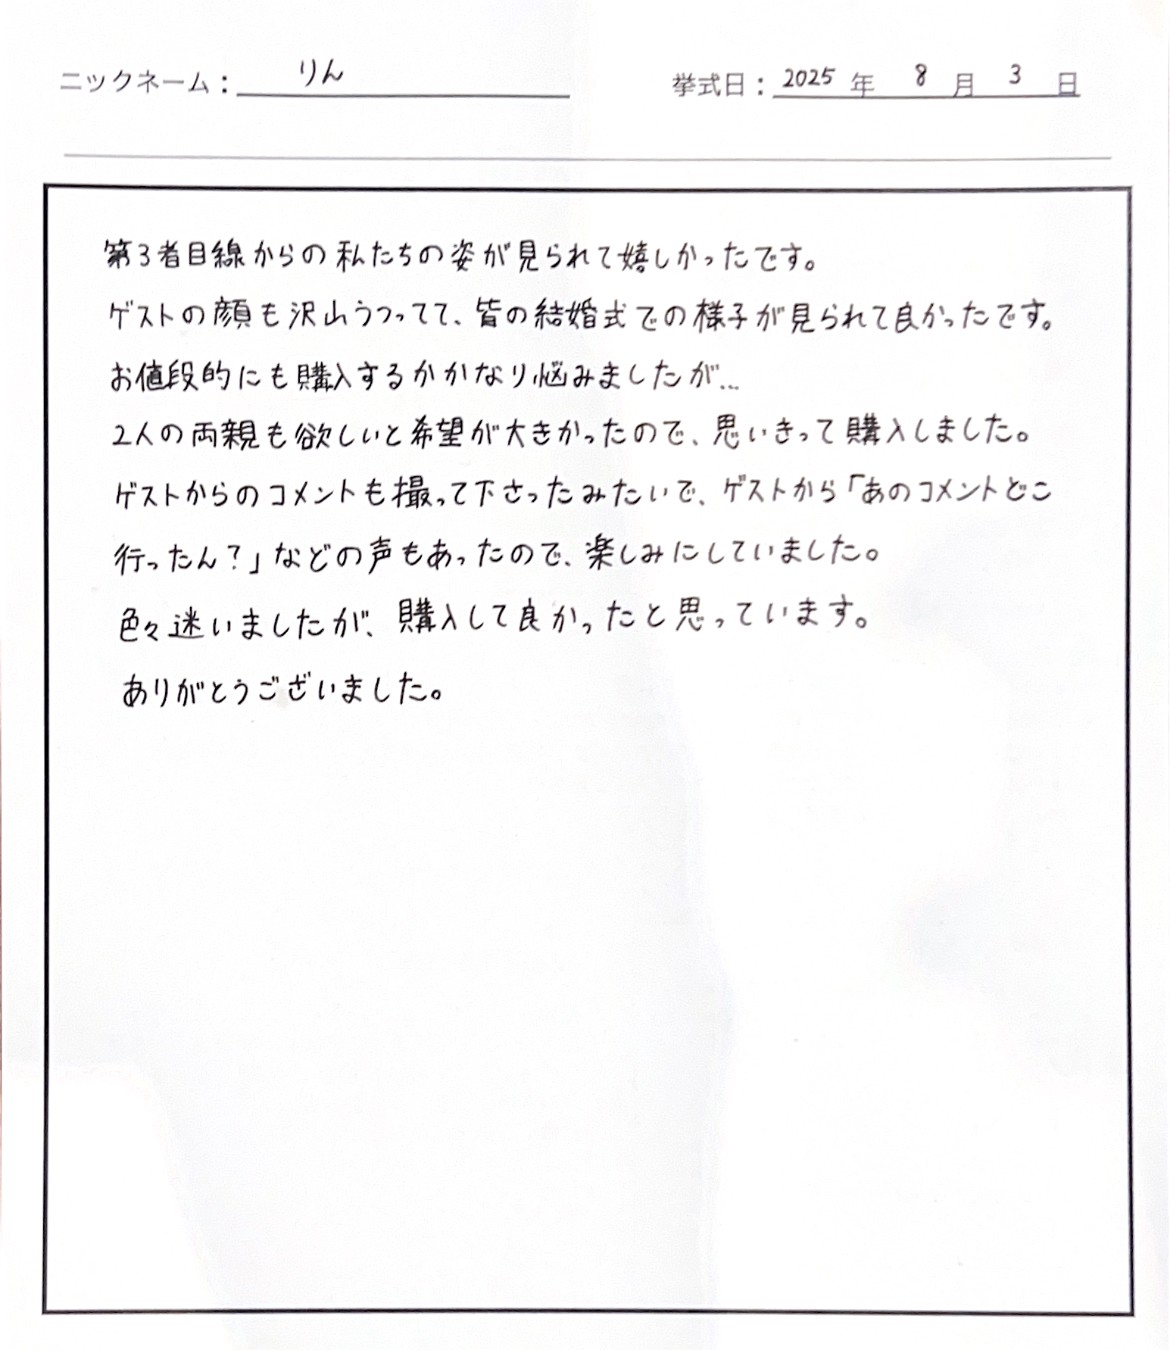 ニックネーム： りん
挙式日： 2025 年 8 月 3 日
第3者目線からの私たちの姿が見られて嬉しかったです。
ゲストの顔も沢山うつってて、皆の結婚式での様子が見られて良かったです。
お値段的にも購入するかかなり悩みましたが…
2人の両親も欲しいと希望が大きかったので、思いきって購入しました。
ゲストからのコメントも撮って下さったみたいで、ゲストから「あのコメントどこ
行ったん？」などの声もあったので、楽しみにしていました。
色々迷いましたが、購入して良かったと思っています。
ありがとうございました。